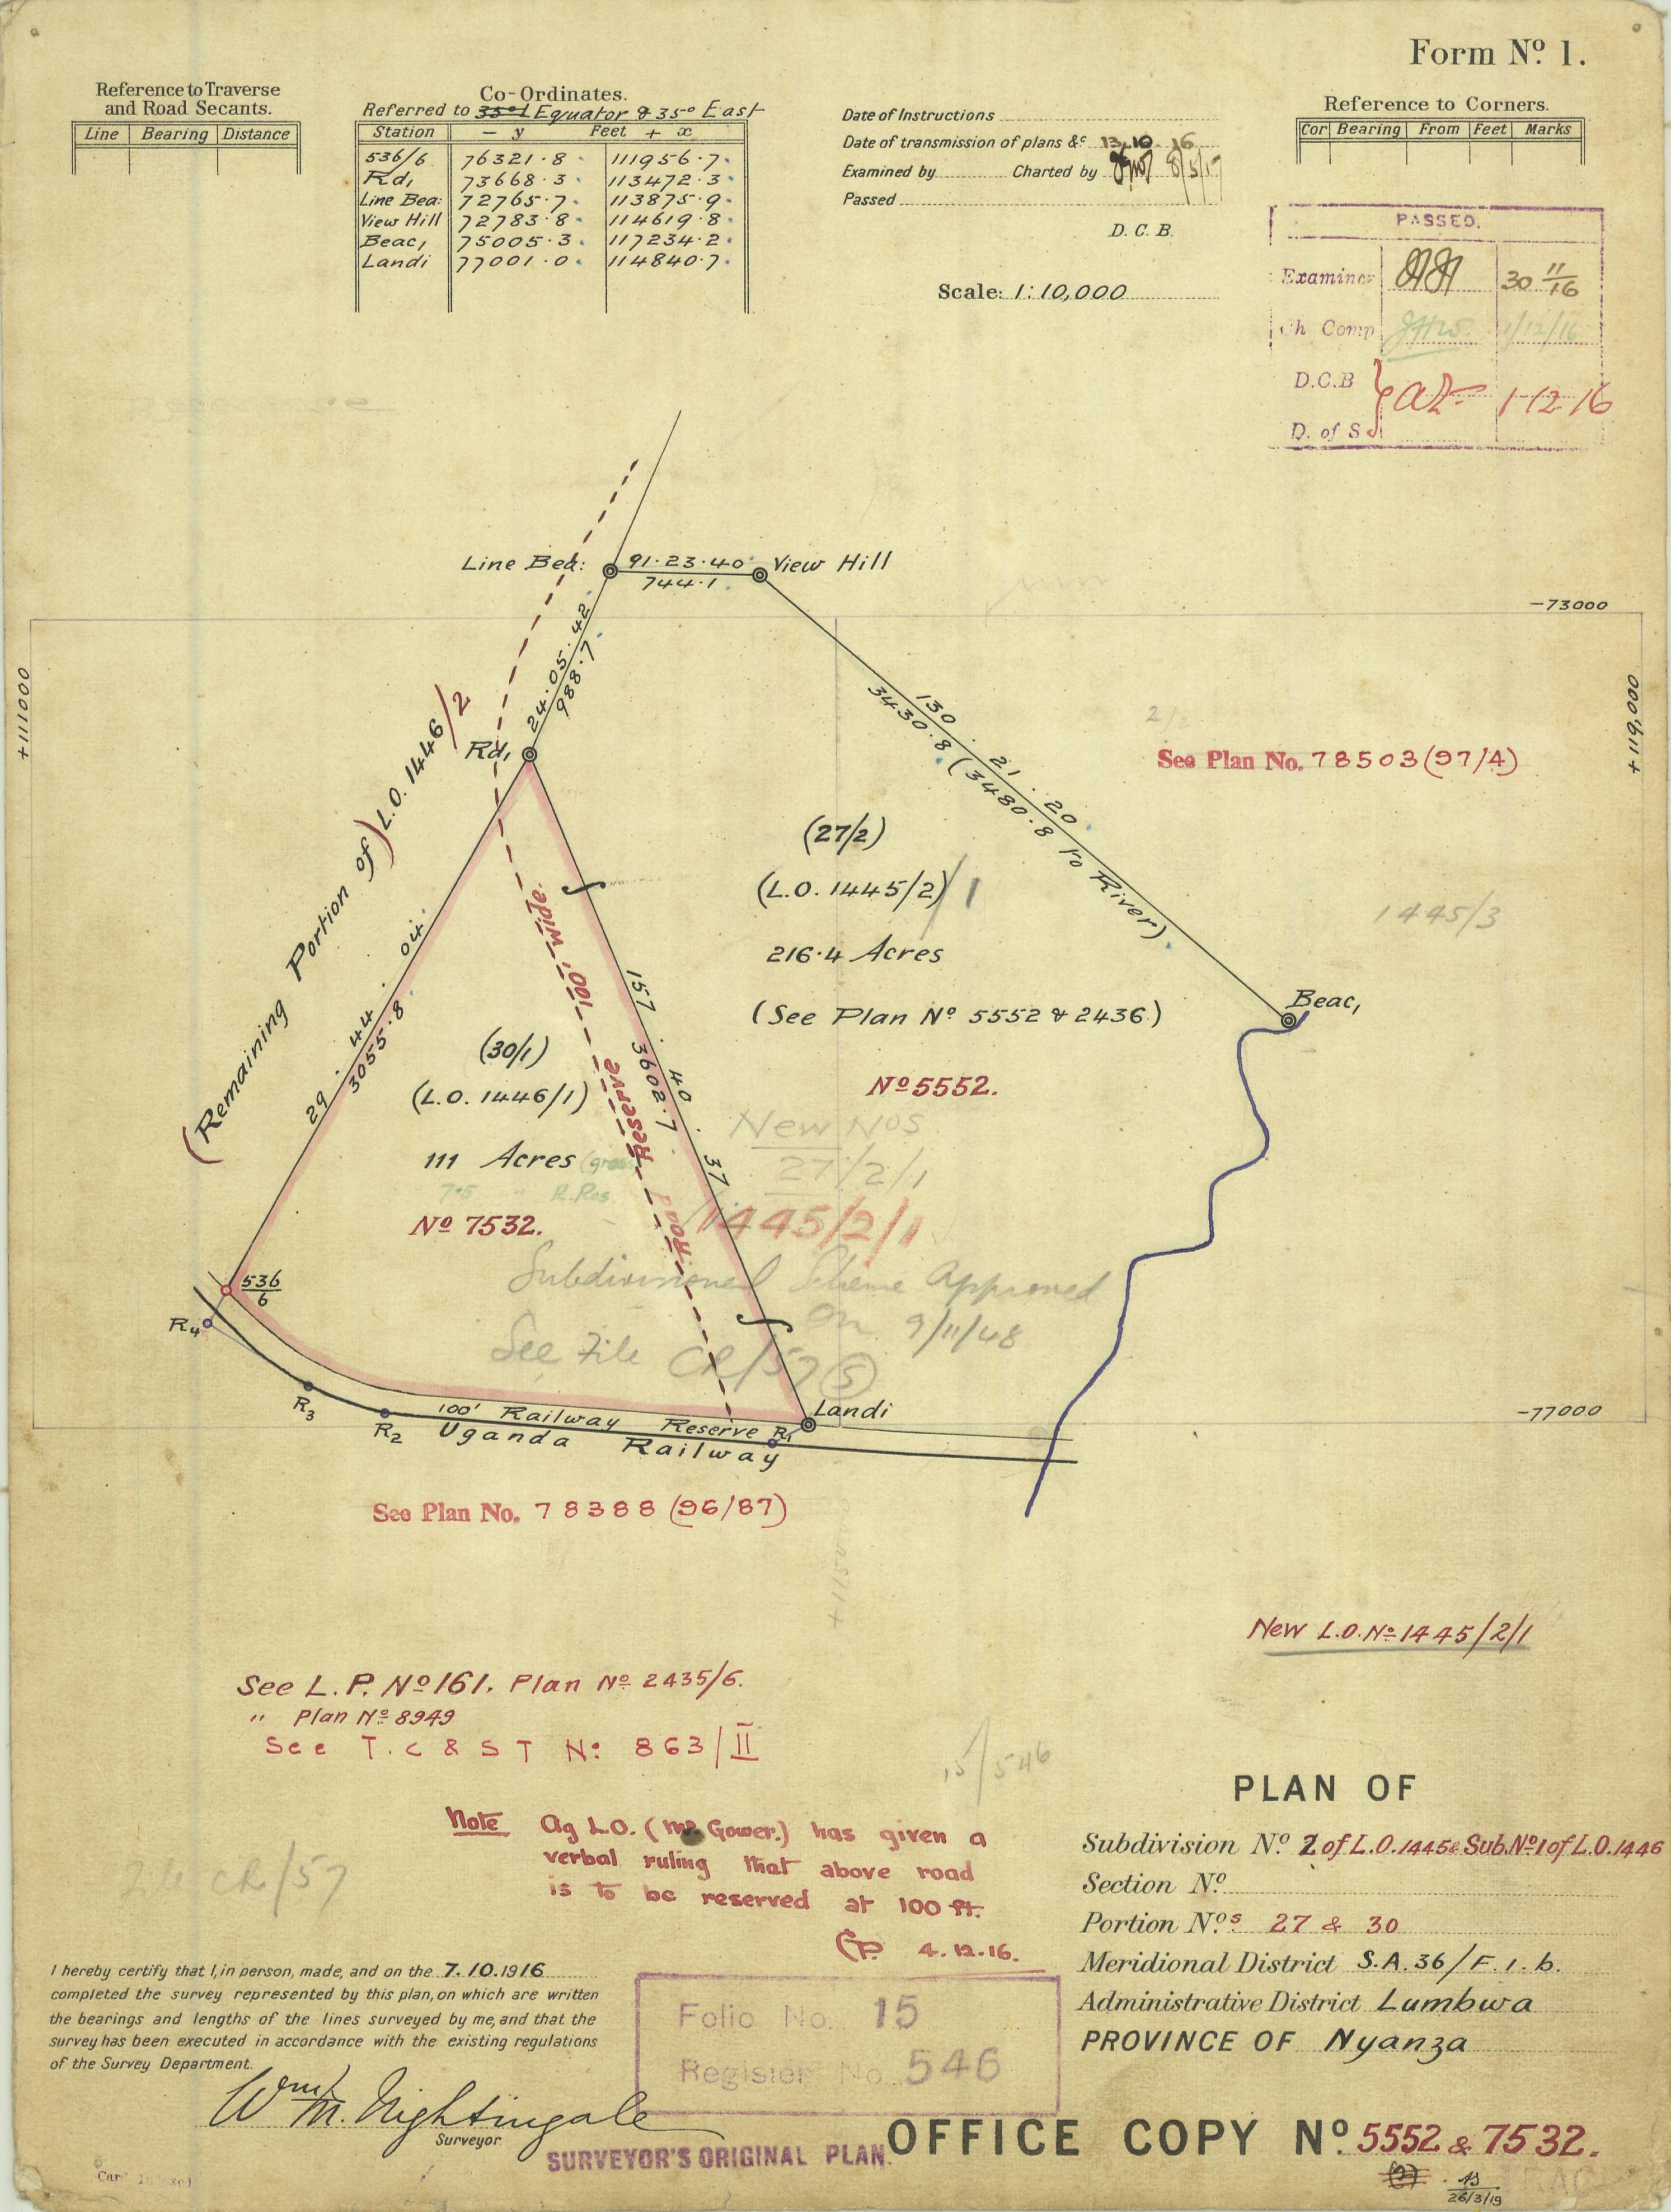 Form Nº 1.
Reference to Traverse
and Road Secants.
Line Bearing Distance
Co-Ordinates.
Referred to Equator & 35º East
Station — y Feet + x
536/6 76321.8 111956.7
Rd, 73668.3 113472.3
Line Bea: 72765.7 113875.9
View Hill 72783.8 114619.8
Beac, 75005.3 117234.2
Landi 77001.0 114840.7
Date of Instructions
Date of transmission of plans &c 13.10.16
Examined by Charted by 8/5/17
Passed
D. C. B.
Scale: 1:10,000
Reference to Corners.
Cor Bearing From Feet Marks
PASSED.
Examiner 30 11/16
Ch Comp 1/12/16
D.C.B
1-12-16
D. of S
Line Bea: 91.23.40 View Hill
744.1
-73000
+111000
+119,000
24.05.42
988.7
Rd,
130.21.20
3430.8 (3480.8 to River)
See Plan No. 78503 (97/4)
(Remaining Portion of) L.O. 1446/2
(27/2)
(L.O. 1445/2)/1
216.4 Acres
(See Plan Nº 5552 & 2436)
Nº 5552.
1445/3
Beac,
29.44.04
3055.8
157.40.37
3602.7
Road Reserve 100' wide.
(30/1)
(L.O. 1446/1)
111 Acres (gross
7.5 " R.Res.
Nº 7532.
New Nos
27/2/1
1445/2/1
Subdivisional Scheme Approved
on 9/11/48
See File CR/57 (S)
536/6
R4
R3
R2
R1
Landi
100' Railway Reserve
Uganda Railway
-77000
See Plan No. 78388 (96/87)
New L.O. Nº 1445/2/1
See L.P. Nº 161. Plan Nº 2435/6.
" Plan Nº 8949
See T.C & S T Nº 863/II
15/546
Note Ag L.O. (Mr Gower.) has given a
verbal ruling that above road
is to be reserved at 100 ft.
4.12.16.
File CR/57
PLAN OF
Subdivision Nº 2 of L.O.1445 & Sub.Nº1 of L.O.1446
Section Nº
Portion Nºs 27 & 30
Meridional District S.A.36/F.1.b.
Administrative District Lumbwa
PROVINCE OF Nyanza
I hereby certify that I, in person, made, and on the 7.10.1916
completed the survey represented by this plan, on which are written
the bearings and lengths of the lines surveyed by me, and that the
survey has been executed in accordance with the existing regulations
of the Survey Department.
Wm M. Nightingale
Surveyor
Folio No. 15
Register No. 546
SURVEYOR'S ORIGINAL PLAN.
OFFICE COPY Nº 5552 & 7532.
26/3/19